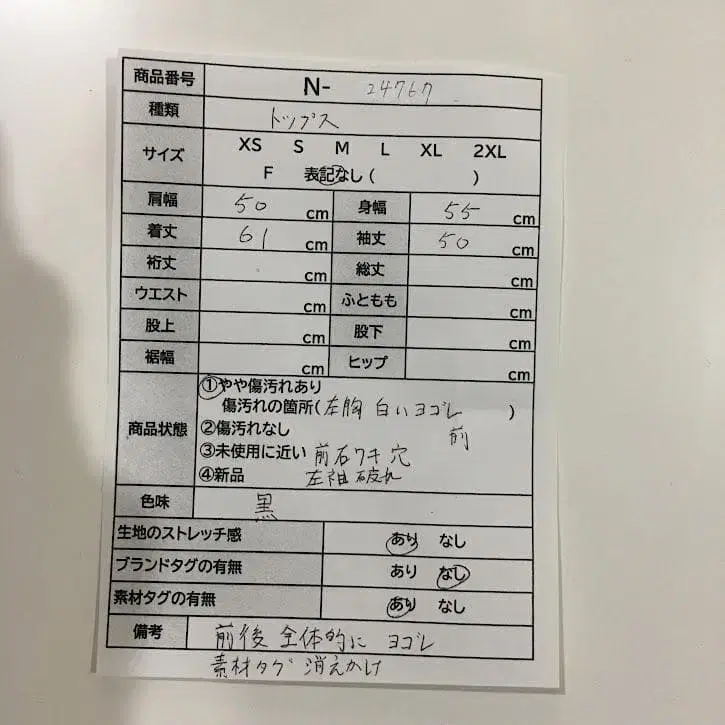 商品番号 N- 24767
種類 トップス
サイズ XS S M L XL 2XL
F 表記なし( )
肩幅 50 cm 身幅 55 cm
着丈 61 cm 袖丈 50 cm
裄丈 cm 総丈 cm
ウエスト cm ふともも cm
股上 cm 股下 cm
裾幅 cm ヒップ cm
商品状態 ①やや傷汚れあり
傷汚れの箇所(左胸 白いヨゴレ )
②傷汚れなし 前
③未使用に近い 前右ワキ 穴
④新品 左袖 破れ
色味 黒
生地のストレッチ感 あり なし
ブランドタグの有無 あり なし
素材タグの有無 あり なし
備考 前後 全体的に ヨゴレ
素材タグ 消えかけ